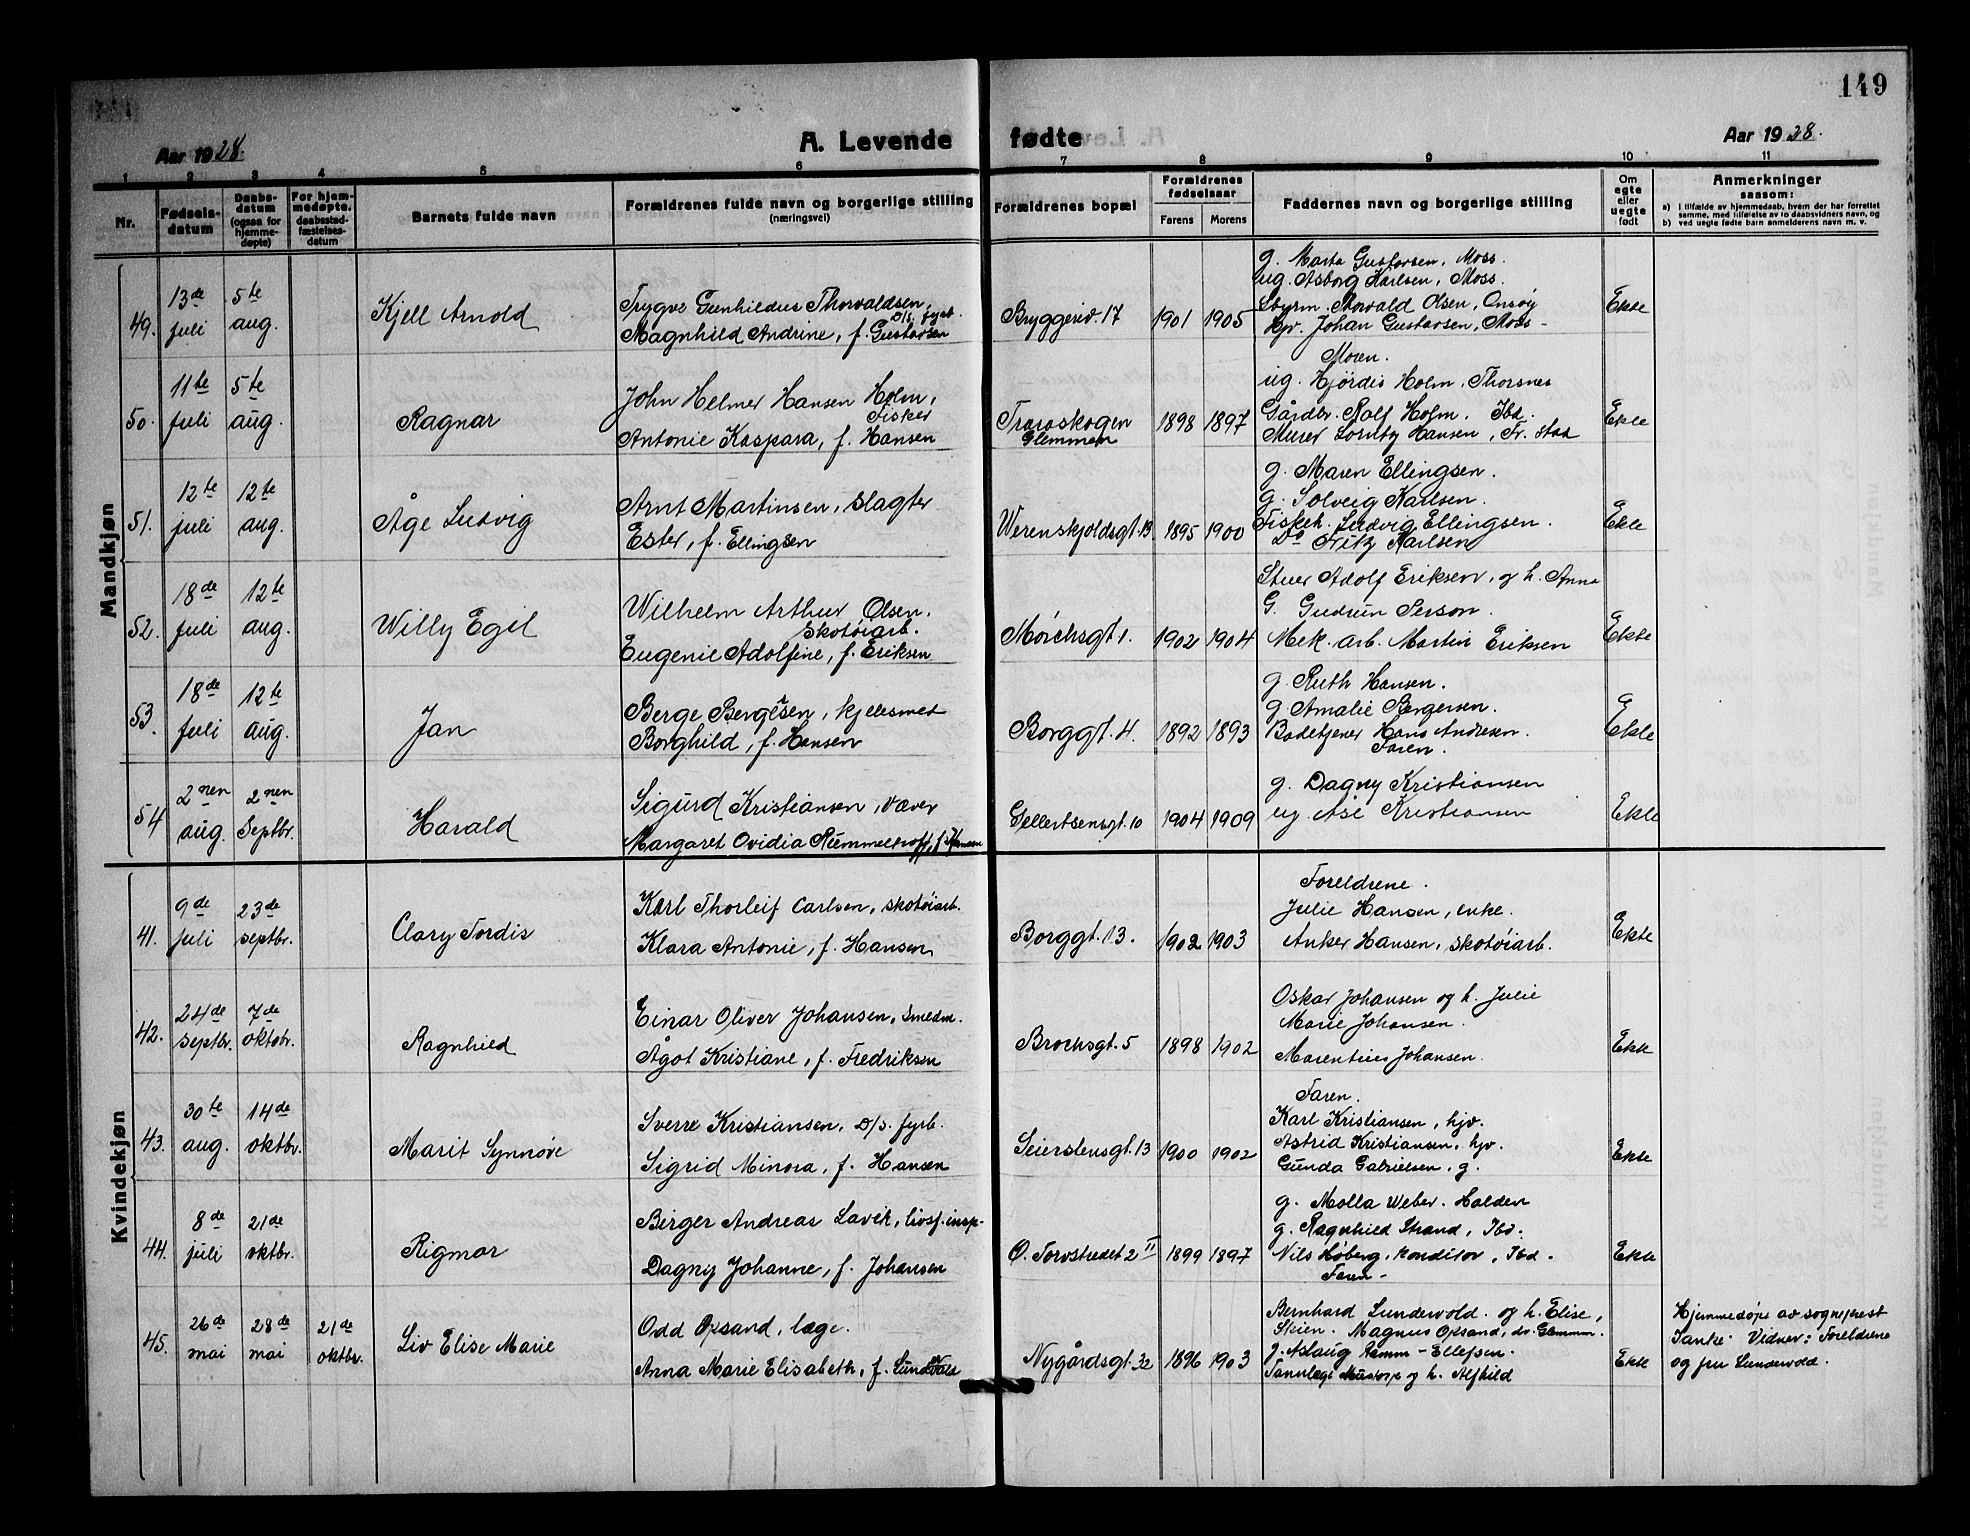 149
Aar 1928.
A. Levende
fødte
Aar 1928.
1 2 3 4 5 6 7 8 9 10 11
Nr.
Fødsels-
datum
Daabs-
datum
(ogsaa for
hjemme-
døpte)
For hjem-
medøpte.
daabsstad-
fæstelses-
datum
Barnets fulde navn
Forældrenes fulde navn og borgerlige stilling
(næringsvei)
Forældrenes bopæl
Forældrenes
fødselsaar
Farens Morens
Faddernes navn og borgerlige stilling
Om
egte
eller
uegte
født
Anmerkninger
saasom:
a) i tilfælde av hjemmedaab, hvem der har forrettet
samme, med tilføielse av to daabsvidners navn, og
b) ved uegte fødte barn anmelderens navn m. v.
Mandkjøn
49. 13de juli 5te aug.
Kjell Arnold
Trygve Gunhildus Thorvaldsen,
D/S. fyrb.
Magnhild Andrine, f. Gustavsen
Bryggeriv. 17 1901 1905
g. Marta Gustavsen, Moss.
ug. Asborg Karlsen, Moss.
Styrm. Torvald Olsen, Onsøy
Hjv. Johan Gustavsen, Moss -
Ekte
50. 11te juli 5te aug.
Ragnar
John Helmer Hansen Holm,
Fisker
Antonie Kaspara, f. Hansen
Traraskogen
Glemmen
1898 1897
Moren.
ug. Hjørdis Holm, Thorsnes
Gårdbr. Ralf Holm. Ibd.
Murer Hansen, Fr.stad
Ekte
51. 12te juli 12te aug.
Åge Ludvig
Arnt Martinsen, slagter
Ester, f. Ellingsen
Werenskjoldsgt. 13. 1895 1900
g. Maren Ellingsen.
g. Solveig Karlsen.
Fiskeh. Ludvig Ellingsen.
Do Fritz Karlsen
Ekte
52. 18de juli 12te aug.
Willy Egil
Wilhelm Arthur Olsen,
Skotøiarb.
Eugenie Adolfine, f. Eriksen
Mørchsgt 1. 1902 1904
Stuer Adolf Eriksen, og h. Anna
G. Gudrun Person.
Mek. arb. Martin Eriksen
Ekte
53. 18de juli 12te aug.
Jan
Berge Bergesen, kjelesmed
Borghild, f. Hansen
Borggt. 4. 1892 1893
g. Ruth Hansen.
g. Amalie Bergersen.
Badetjener Hans Andresen.
Faren.
Ekte
54 2nen aug. 2nen septbr.
Harald
Sigurd Kristiansen, væver
Margaret Ovidia Rummelhoff, f. Hansen
Gellertsensgt. 10 1904 1909
g. Dagny Kristiansen
ug Åse Kristiansen
Ekte
Kvindekjøn
41. 9de juli 23de septbr.
Clary Tordis
Karl Thorleif Carlsen, skotøiarb.
Klara Antonie, f. Hansen
Borggt. 13. 1902 1903
Foreldrene.
Julie Hansen, enke.
Anker Hansen, skotøiarb.
Ekte
42. 24de septbr. 7de oktobr.
Ragnhild
Einar Oliver Johansen, smedm.
Ågot Kristiane, f. Fredriksen
Brochsgt. 5 1898 1902
Oskar Johansen og h. Julie
Marie Johansen.
Marentius Johansen.
Ekte
43. 30te aug. 14de oktbr.
Marit Synnøve
Sverre Kristiansen, D/S. fyrb.
Sigrid Minora, f. Hansen
Seierstensgt. 13 1900 1902
Faren.
Karl Kristiansen, hjv.
Astrid Kristiansen, hjv.
Gunda Gabrielsen, g.
Ekte
44. 8de juli 21de oktbr.
Rigmor
Birger Andreas Lavik, livsf.insp.
Dagny Johanne, f. Johansen
O. Torvstredet 2 II 1899 1897
g. Molla Weber. Halden
g. Ragnhild Strand, Ibd.
Nils Høberg, konditor, Ibd.
Faren -
Ekte
45. 26de mai 28de mai 21de oktbr.
Liv Elise Marie
Odd Opsand, læge.
Anna Marie Elisabeth, f. Lundevold
Nygårdsgt. 32 1896 1903
Bernhard Lundevold. og h. Elise,
Skien. Magnus Opsand, dr. Glemmen.
g. Aslaug Ramm-Ellefsen.
Tannlæge og h. Alfhild
Ekte
Hjemmedøpt av sogneprest
Tanke. Vidner: Foreldrene
og fru Lundevold.